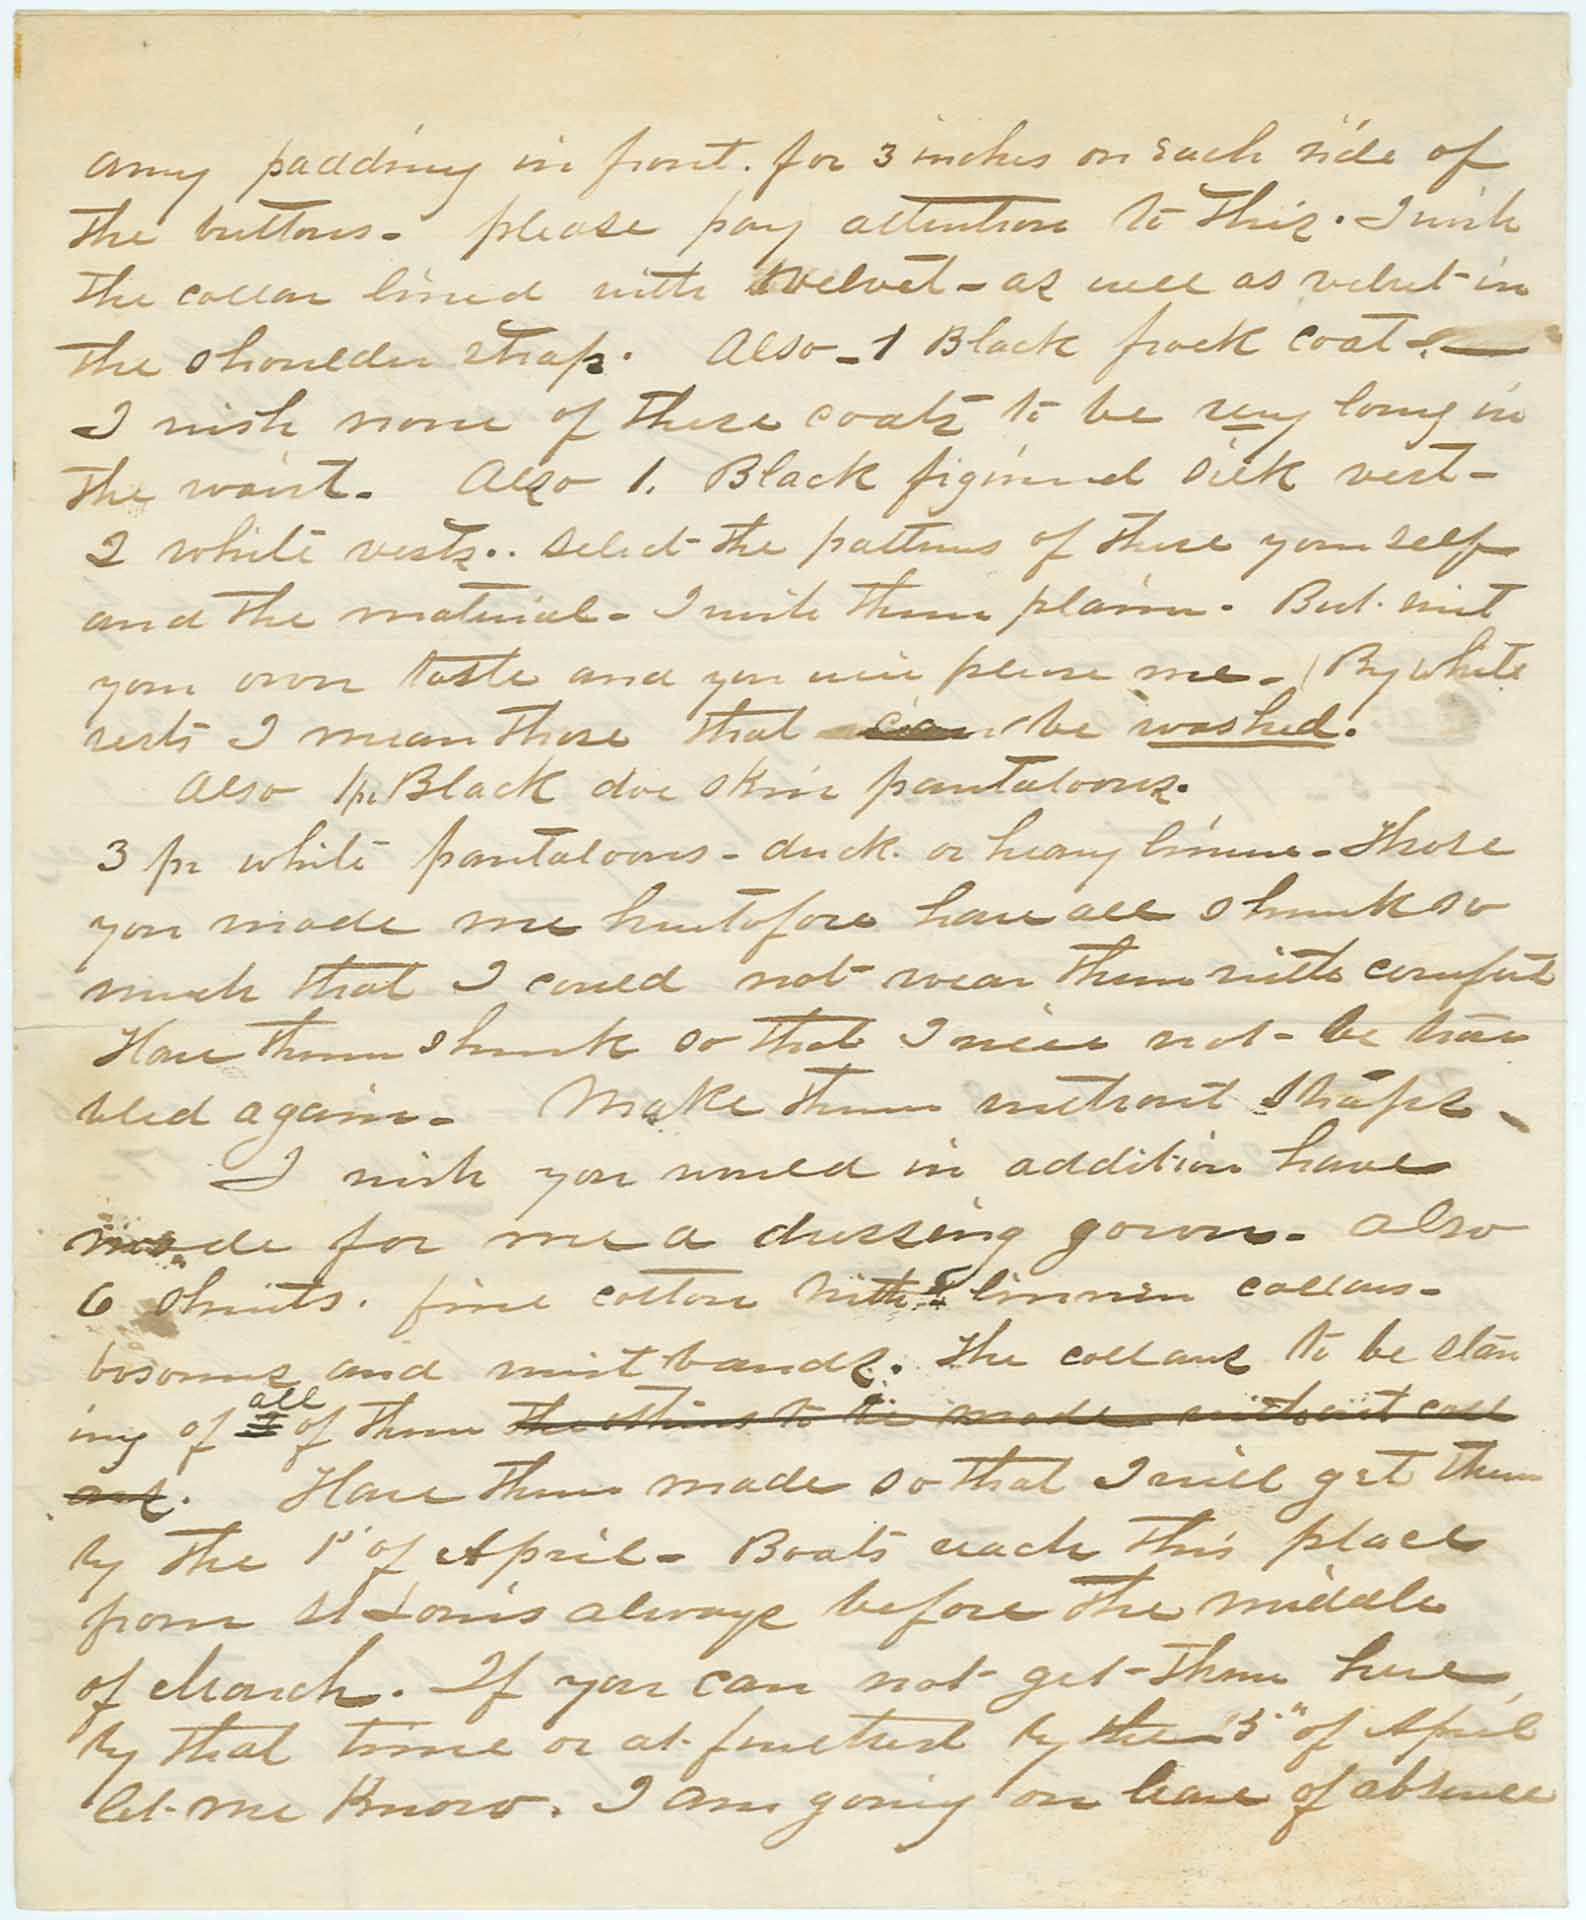 any padding in front. for 3 inches on each side of
the buttons. please pay attention to this. I wish
the collar lined with velvet - as well as velvet in
the shoulder strap. Also - 1 Black frock coat -
I wish none of these coats to be very long in
the waist. Also 1. Black figured silk vest -
2 white vests.. select the patterns of these yourself
and the material - I wish them plain. But suit
your own taste and you will please me. (By white
vests I mean those that can be washed.
Also 1 pr Black doe skin pantaloons.
3 pr white pantaloons - duck. or heavy linnen - Those
you made me heretofore have all shrunk so
much that I could not wear them with comfort
Have them shrunk so that I will not be trou
bled again. Make them without straps -
I wish you would in addition have
made for me a dressing gown. also
6 shirts. fine cotton with linnen collars -
bosoms and wrist bands. The collars to be stan
ing of all of them the others to be made without coll
ars. Have them made so that I will get them
by the 1st of April - Boats reach this place
from St Louis always before the middle
of March. If you can not get them here
by that time or at furthest by the 15" of April
let me know. I am going on leave of absence